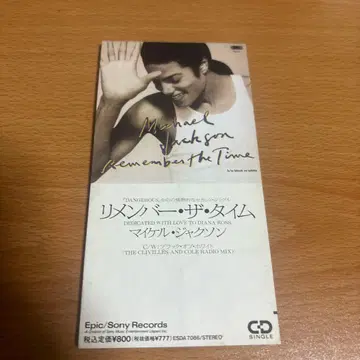 Michael
Jackson
Remember the Time
リメンバー・ザ・タイム
DEDICATED WITH LOVE TO DIANA ROSS
マイケル・ジャクソン
THE CLIVILLES AND COLE RADIO MIX
Epic/Sony Records
税込定価¥800(税抜価格¥777)/ESDA 7086/STEREO
CD
SINGLE